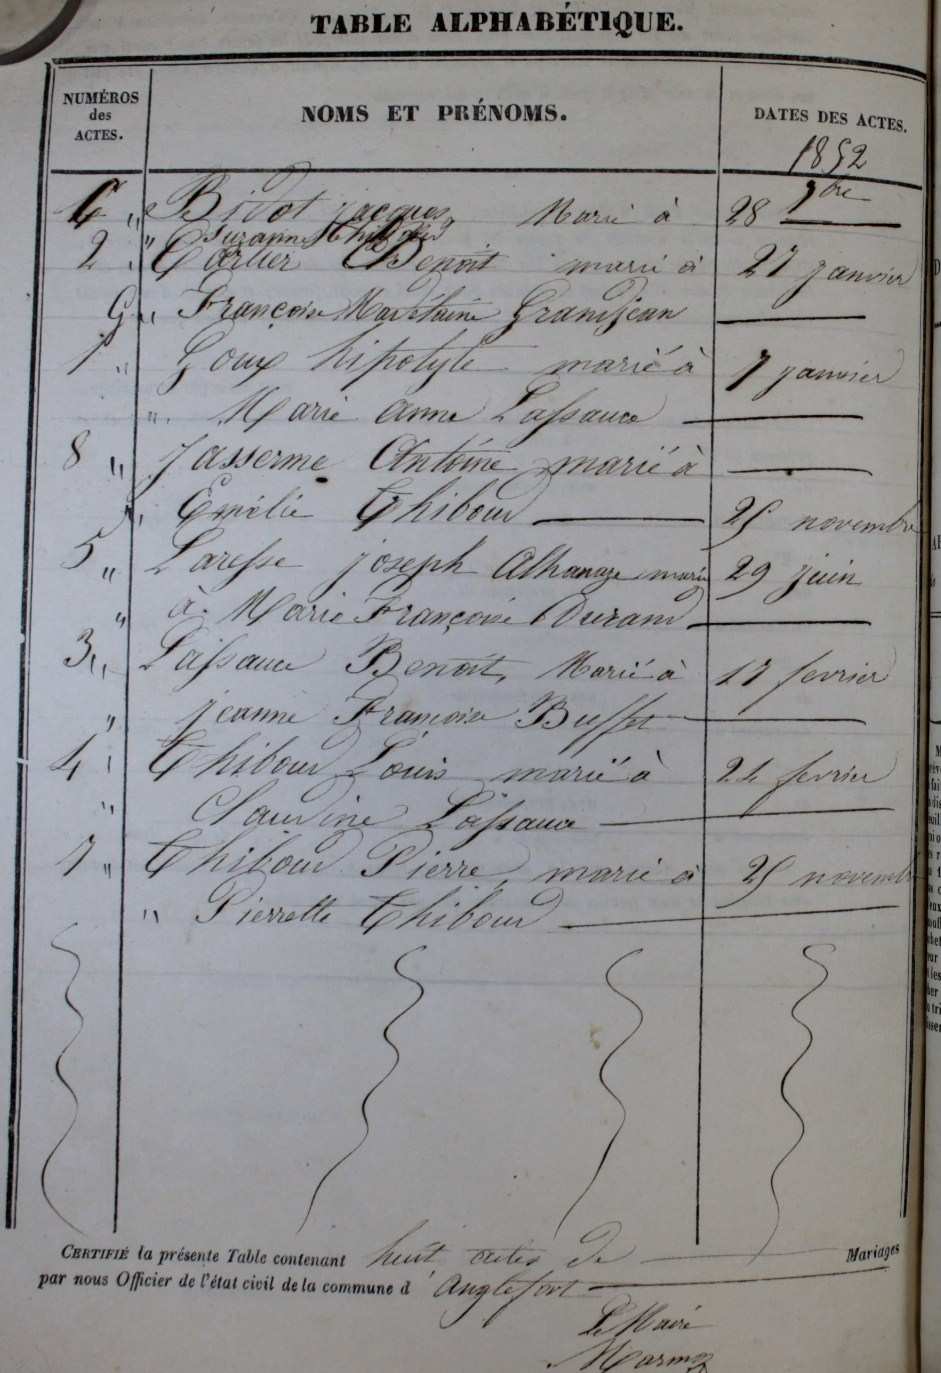 TABLE ALPHABÉTIQUE.
NUMÉROS des ACTES.
NOMS ET PRÉNOMS.
DATES DES ACTES.
1852
6 " Bidot jacques Marié à 28 7bre
" Suzanne Thiboud
2 " Carlier Benoit marié à 27 janvier
" Françoise Grandjean
1 " Goux hipolyte marié à 7 janvier
" Marie anne Lassauce
8 " Jasserme Antoine marié à
" Emélie Thiboud 25 novembre
5 " Laresse joseph Athanaze marié 29 juin
" à Marie Françoise Durand
3 " Lassauce Benoit, Marié à 17 fevrier
" jeanne Françoise Buffet
4 " Thiboud Louis marié à 24 fevrier
" Claudine Lassauce
7 " Thiboud Pierre, marié à 25 novembre
" Pierrette Thiboud
CERTIFIÉ la présente Table contenant huit actes de Mariages
par nous Officier de l'état civil de la commune d' anglefort
Le Maire